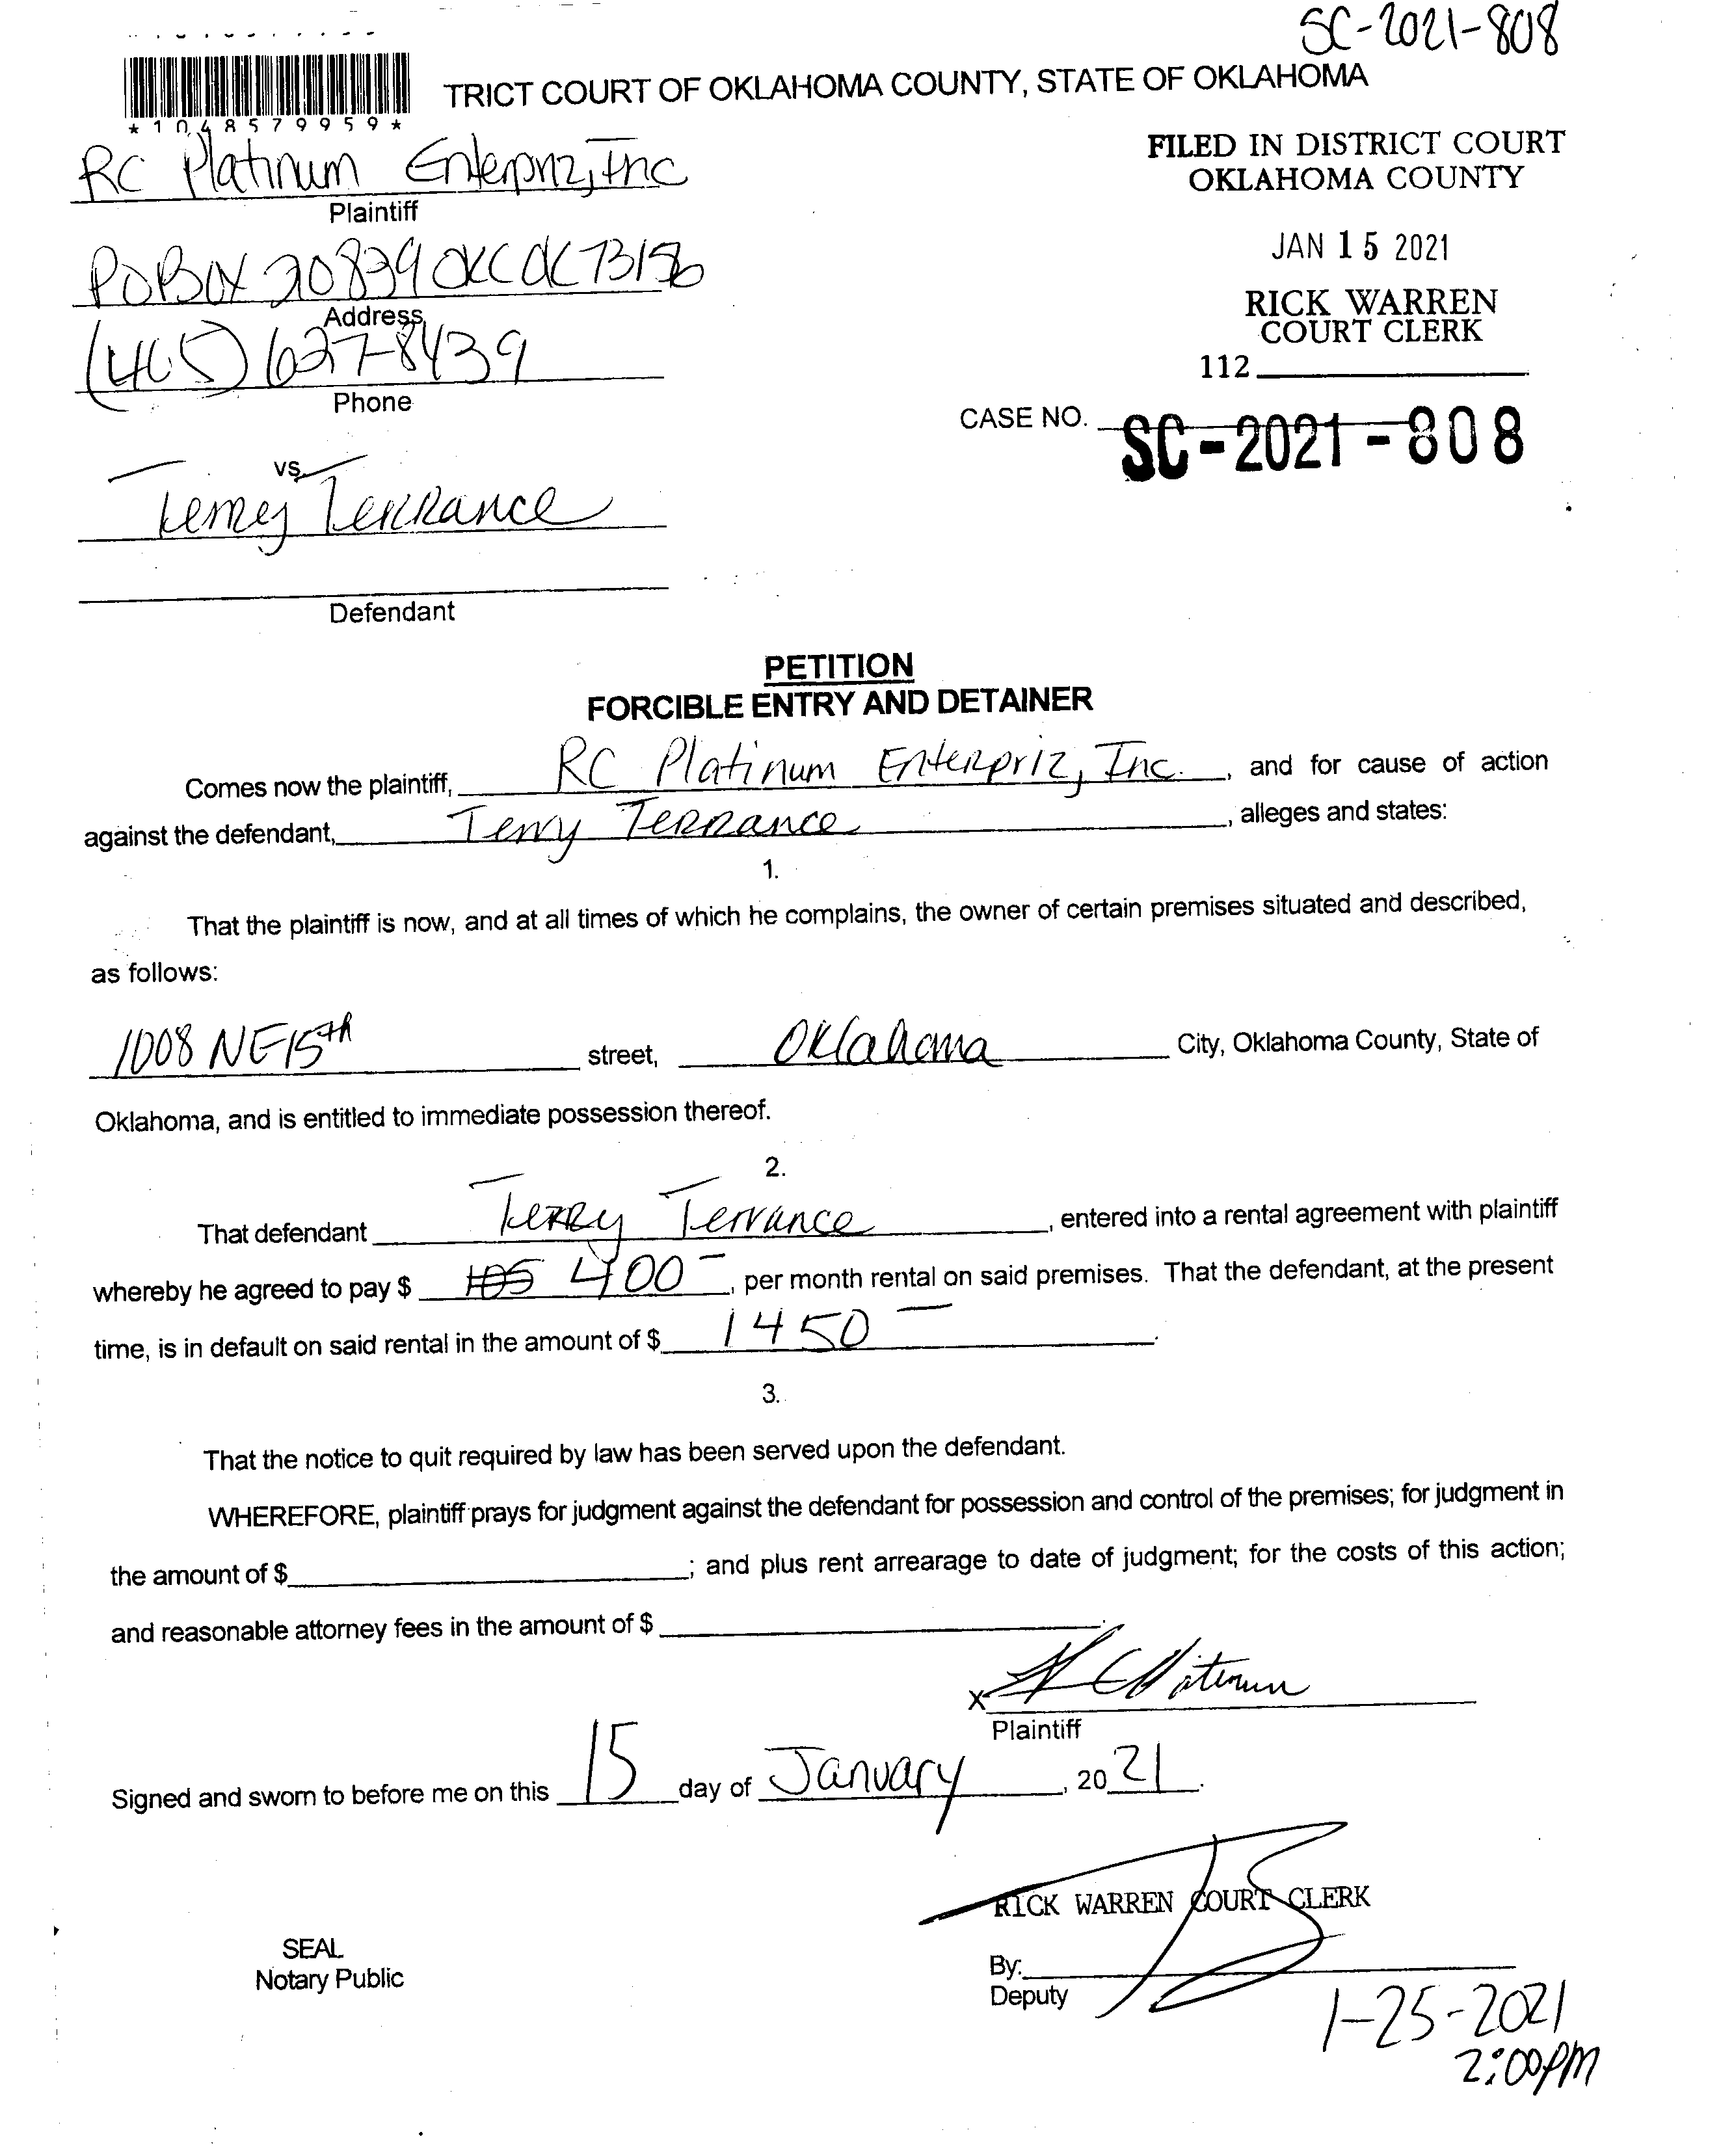 SC-2021-808
TRICT COURT OF OKLAHOMA COUNTY, STATE OF OKLAHOMA
*1048579959*
RC Platinum Enterpriz, Inc
Plaintiff
FILED IN DISTRICT COURT
OKLAHOMA COUNTY
JAN 15 2021
RICK WARREN
COURT CLERK
112
PO BOX 20839 OKC OK 73156
Address
(405) 627-8439
Phone
CASE NO. SC-2021-808
vs.
Terrey Terrance
Defendant
PETITION
FORCIBLE ENTRY AND DETAINER
Comes now the plaintiff, RC Platinum Enterpriz, Inc., and for cause of action
against the defendant, Terry Terrance, alleges and states:
1.
That the plaintiff is now, and at all times of which he complains, the owner of certain premises situated and described,
as follows:
1008 NE 15th street, Oklahoma City, Oklahoma County, State of
Oklahoma, and is entitled to immediate possession thereof.
2.
That defendant Terry Terrance, entered into a rental agreement with plaintiff
whereby he agreed to pay $ 400-, per month rental on said premises. That the defendant, at the present
time, is in default on said rental in the amount of $ 1450-.
3.
That the notice to quit required by law has been served upon the defendant.
WHEREFORE, plaintiff prays for judgment against the defendant for possession and control of the premises; for judgment in
the amount of $ ; and plus rent arrearage to date of judgment; for the costs of this action;
and reasonable attorney fees in the amount of $ .
x RC Platinum
Plaintiff
Signed and sworn to before me on this 15 day of January, 2021.
RICK WARREN COURT CLERK
SEAL
Notary Public
By:
Deputy
1-25-2021
2:00pm